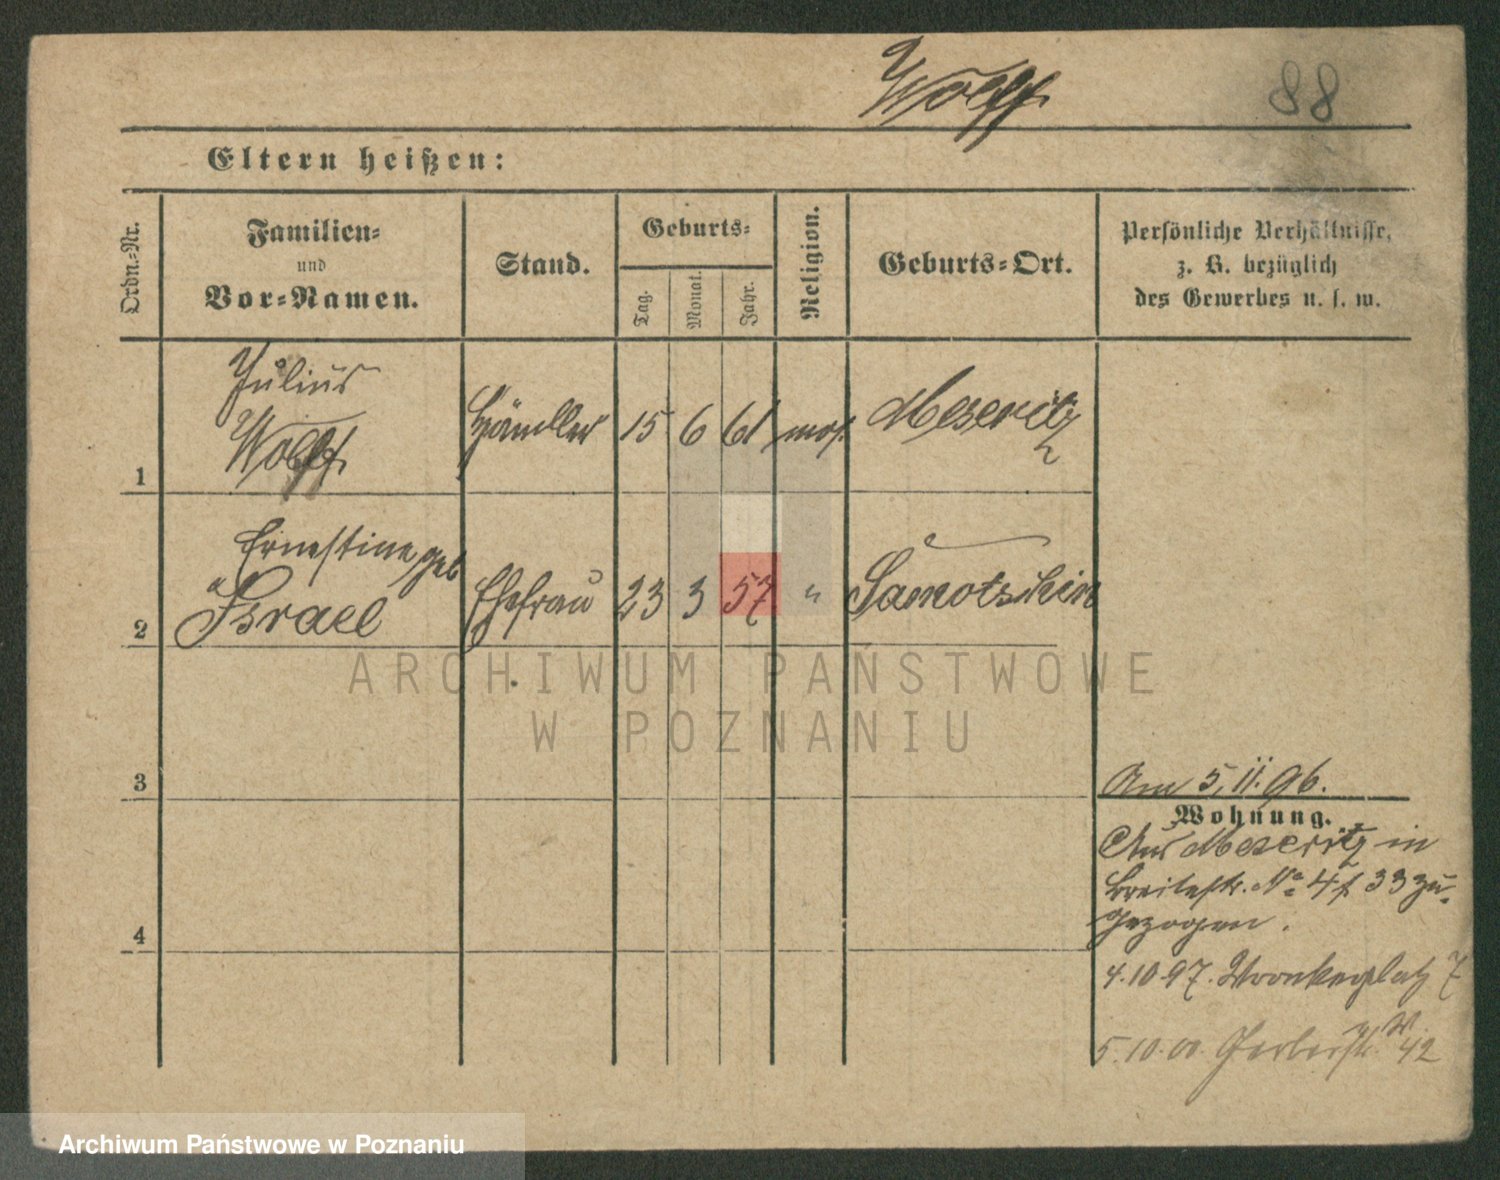 Wolff
88
Eltern heißen:
Ordn.-Nr.
Familien-
und
Vor-Namen.
Stand.
Geburts-
Tag.
Monat.
Jahr.
Religion.
Geburts-Ort.
Persönliche Verhältnisse,
z. B. bezüglich
des Gewerbes u. s. w.
1
Julius
Wolff
Händler
15
6
61
mos.
Meseritz
2
Ernestine geb
Israel
Ehefrau
23
3
57
"
Samotschin
ARCHIWUM PAŃSTWOWE
W POZNANIU
3
4
Am 5.11.96.
Wohnung.
Aus Meseritz in
Breitestr. No 4 33 zu-
gezogen.
4.10.97. Wronkerplatz 7
5.10.00. Gerberstr. 42
Archiwum Państwowe w Poznaniu